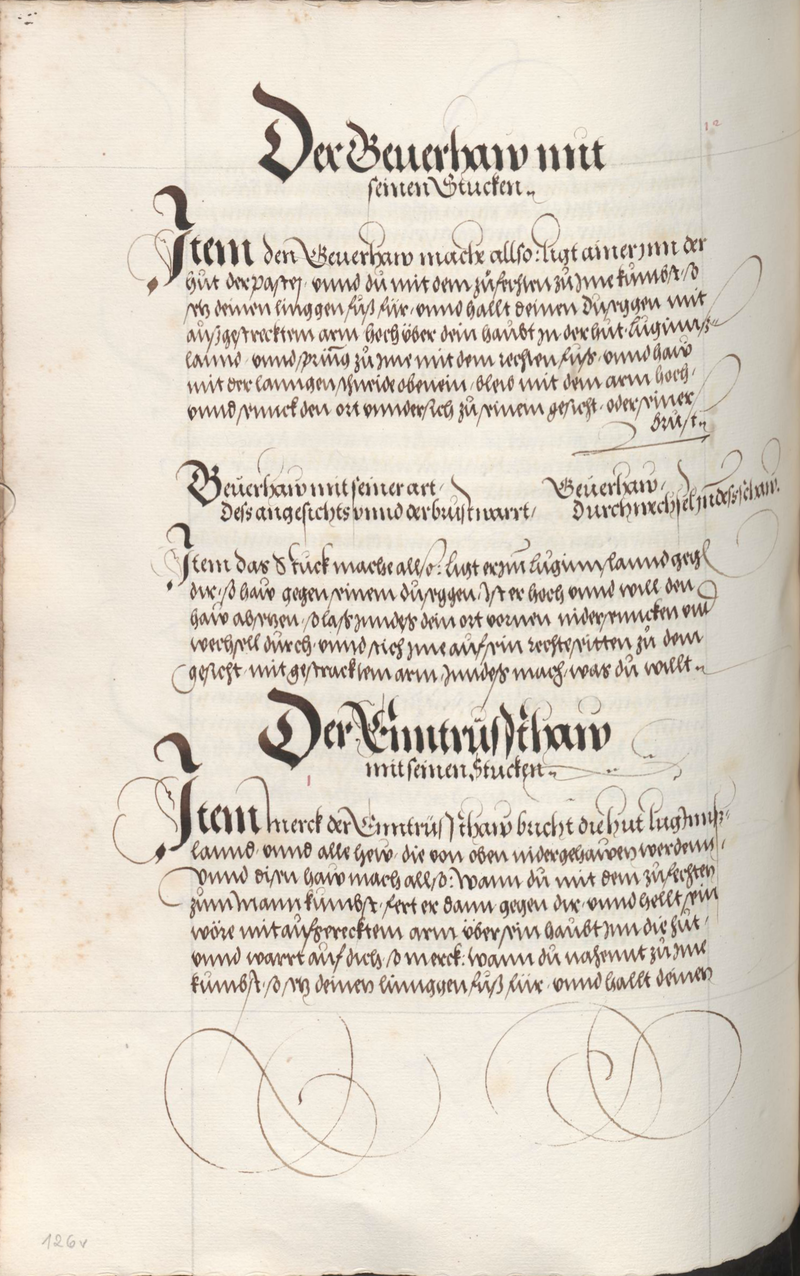 Der Geuerhaw mit
seinen Stucken
Item den Geuerhaw mache allso: ligt ainer jnn der
hut der pastej, vnnd du mit dem zufechten zu jme kumbst, so
setz deinen linggen fuß für, vnnd hallt deinen Dusëggen mit
außgestrecktem arm hoch über dein haubt in der hut Luginnß-
lannd, vnnd spring zu jme mit dem rechten fuß, vnnd haw
mit der lanngen schneide obenein, bleib mit dem arm hoch,
vnnd sennck den ort vnndersich zu seinem gesicht, oder seiner
brust
Geuerhaw mit seiner art, Geuerhaw,
dess angesichts vnnd der brust warrt, durchwechsel jndes schaw.
Item das Stuck mache allso: Ligt er jnn Luginnslannd gegen
dir, so haw gegen seinem Dusëggen, Ist er hoch vnnd will den
haw absetzen, so lass jnndes dein ort vornen nidersenncken vnnd
wechsell durch, vnnd stich jme auf sein rechte seitten zu dem
gesicht mit gestracktem arm, Jnndess mach, was du willt
Der Enntrüsthaw
mit seinen Stucken
Item merck der Enntrüsthaw bricht die hut Luginnß-
lannd, vnnd alle hew, die von oben nidergehawen werdenn,
vnnd disen haw mach allso: Wann du mit dem zufechten
zum Mann kumbst, fert er dann gegen dir, vnnd hellt sein
wöre mit aufgerecktem arm über sein haubt jnn die hut,
vnnd warrt auf dich, so merck: wann du nahennt zu jme
kumbst, so setz deinen linnggen fuß für, vnnd hallt deinen
126v